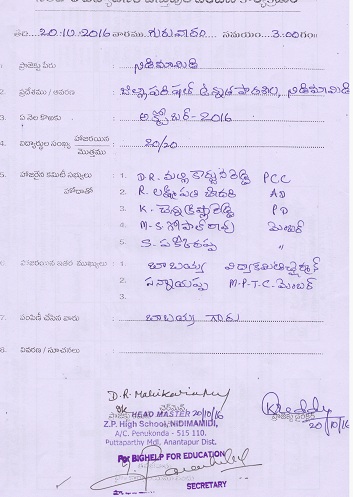 తేది..20.10.2016 వారము గురువారం సమయం...3.00గం॥
1. ప్రాజెక్టు పేరు : నిడిమామిడి
2. ప్రదేశము / ఆవరణ : జిల్లా పరిషత్ ఉన్నత పాఠశాల, నిడిమామిడి
3. ఏ నెల కొఱకు : అక్టోబర్-2016
4. విద్యార్థుల సంఖ్య హాజరయిన / మొత్తము : 20/20
5. హాజరైన కమిటీ సభ్యులు : 1. D.R. మల్లికార్జున రెడ్డి PCC
హోదాతో 2. R. లక్ష్మీపతి AD
3. K. చెన్నకృష్ణారెడ్డి PD
4. M.S. గోపాల్ రావు మెంబర్
5. S. పక్కీరప్ప "
6. హాజరయిన ఇతర ముఖ్యులు : 1. బాబయ్య
2. M.P.T.C. మెంబర్
3.
7. పంపిణీ చేసిన వారు : బాబయ్య గారు
8. వివరణ / సూచనలు :
HEAD MASTER 20/10/16
Z.P. High School, NIDIMAMIDI,
A/C. Penukonda - 515 110.
Puttaparthy Mdl, Anantapur Dist.
K Reddy
20/10/16
For BIGHELP FOR EDUCATION
SECRETARY